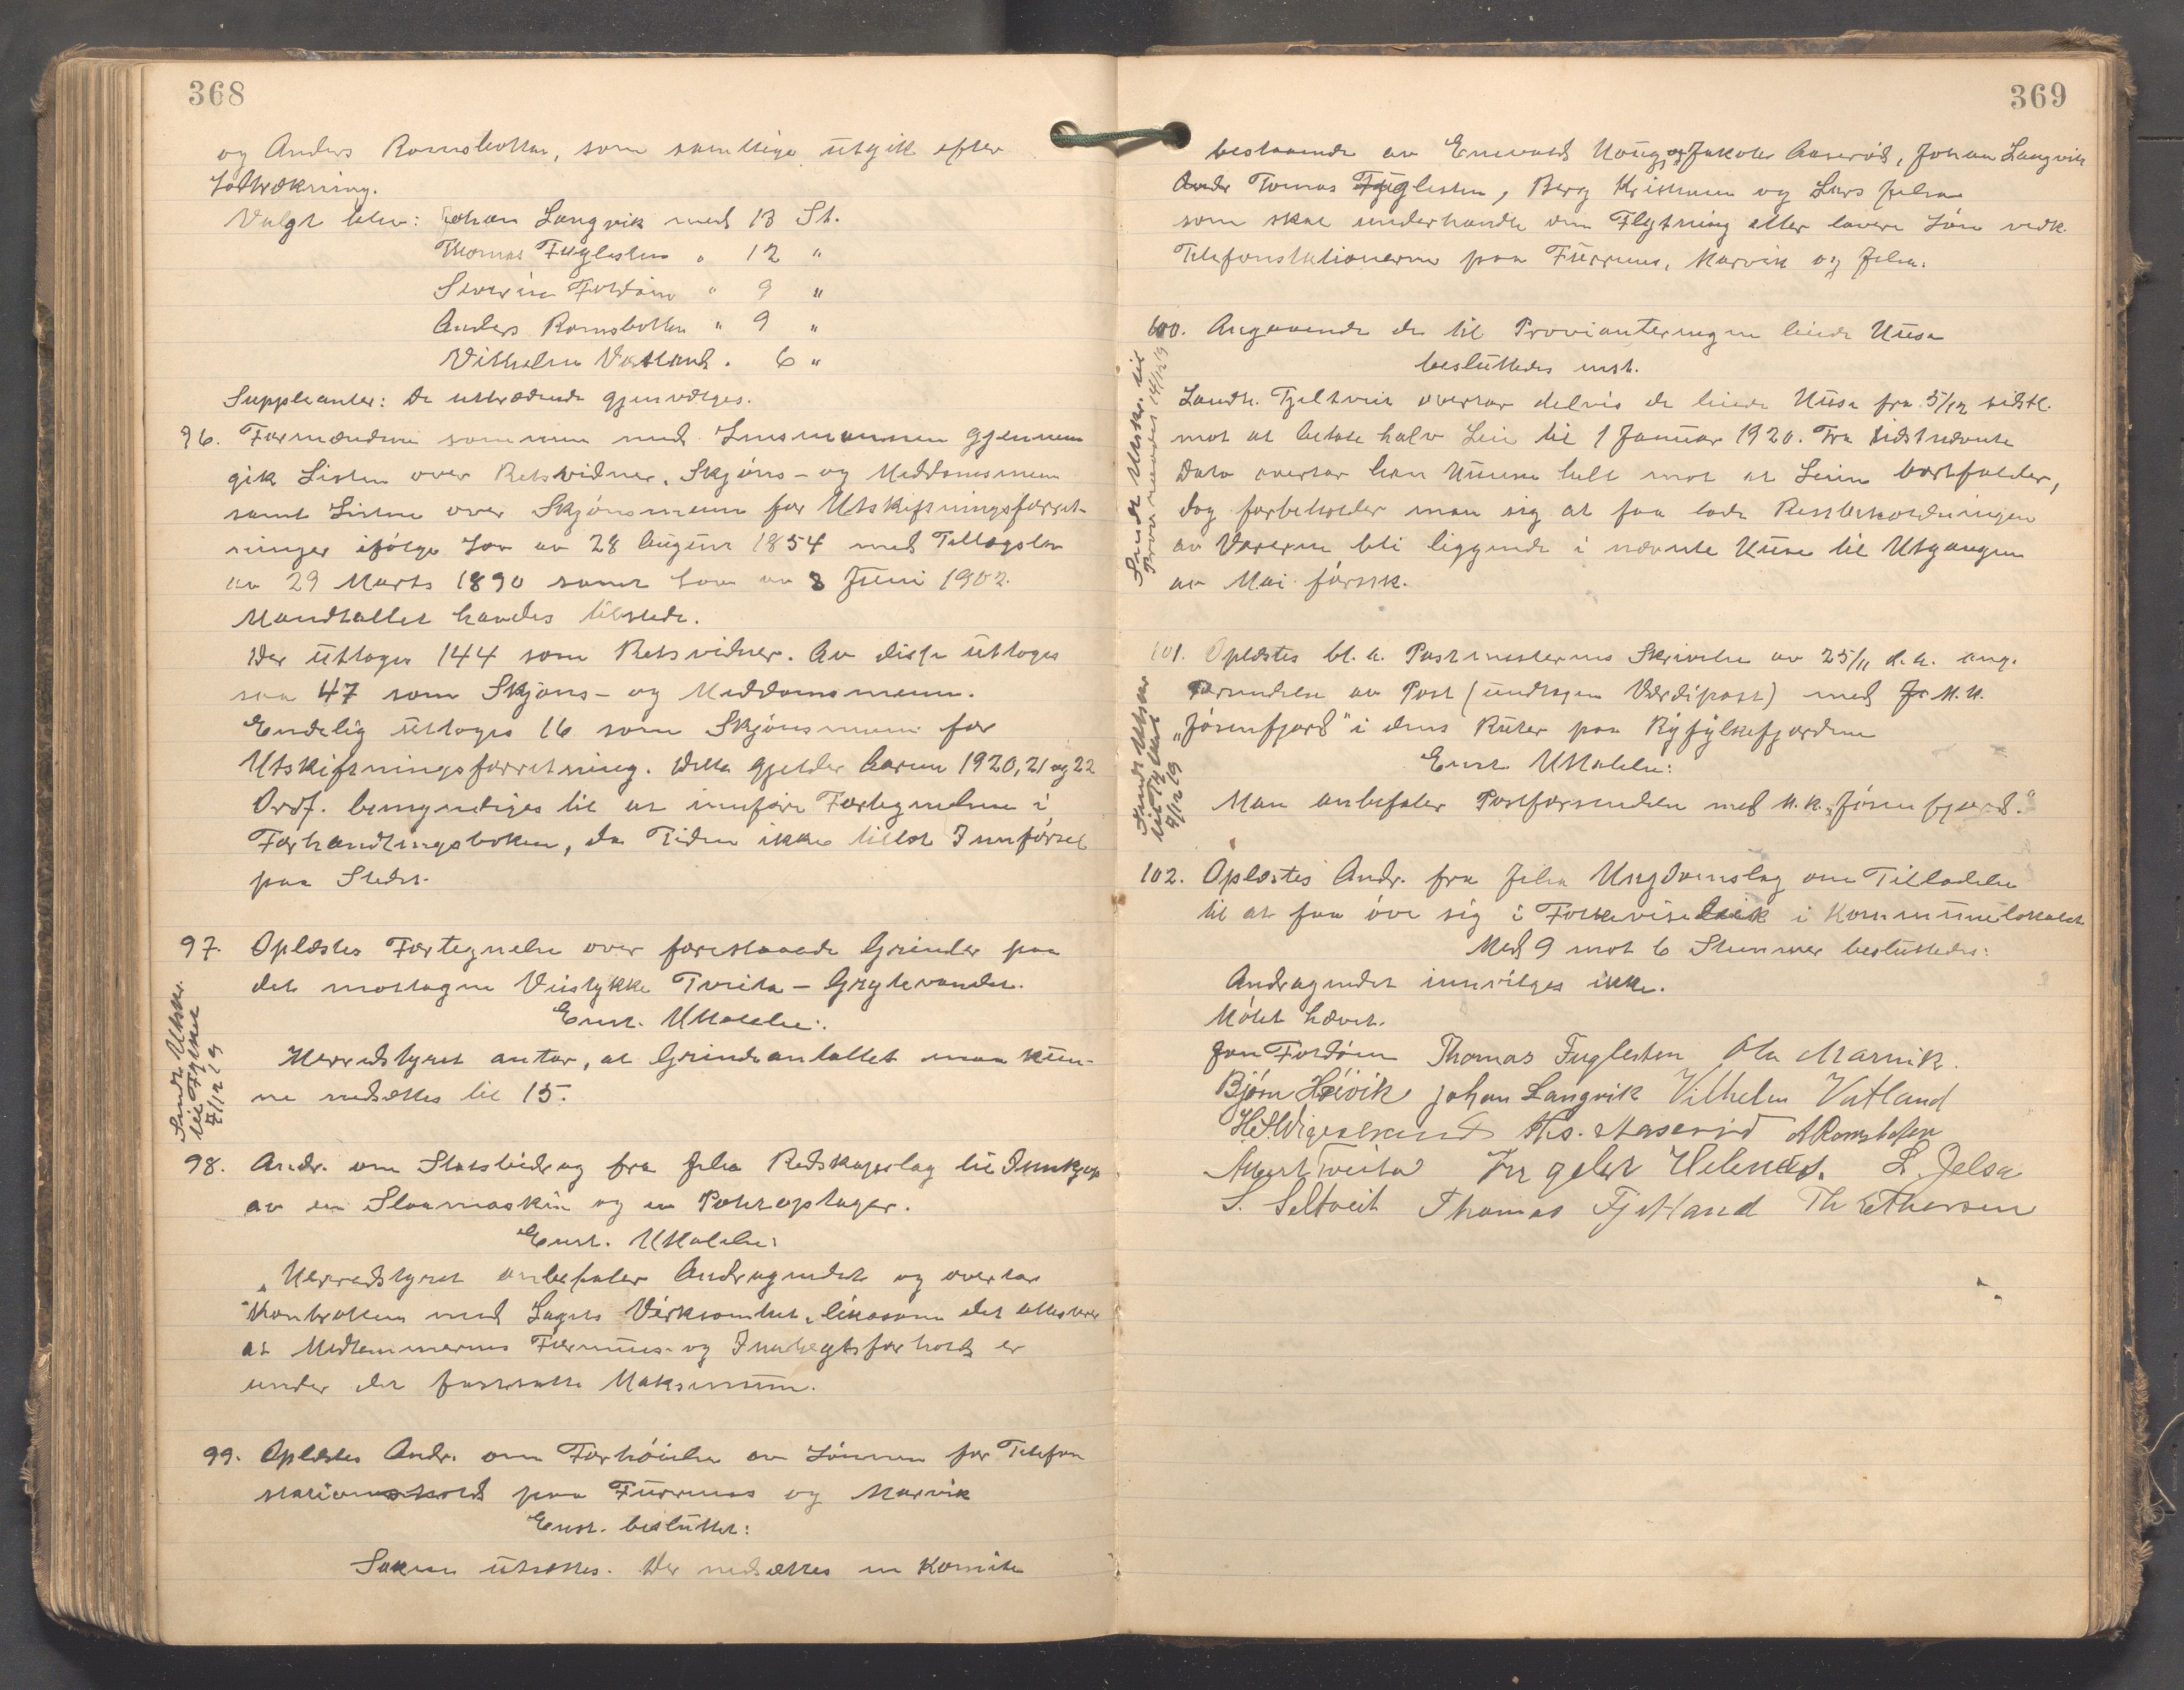 368
og Anders Romsbotten, som samtlige utgik efter
Lodtrækning.
Valgt blev: Johan Langvik med 13 St.
Thomas Fuglesten " 12 "
Severin Foldøin " 9 "
Anders Romsbotten " 9 "
Vilhelm Vatland " 6 "
Suppleanter: De uttrædende gjenvælges.
96. Formændene sammen med Lensmannen gjennem
gik Listen over Retsvidner, Skjøns- og Meddomsmenn
samt Listen over Skjønsmenn for Utskiftningsforret-
ninger ifølge Lov av 28 August 1854 med Tillægslov
av 29 Marts 1890 samt Lov av 3 Juni 1902.
Mandtallet havdes tilstede.
Der uttoges 144 som Retsvidner. Av disse uttoges
saa 47 som Skjøns- og Meddomsmenn.
Endelig uttoges 16 som Skjønsmenn for
Utskiftningsforretning. Dette gjelder Aarene 1920, 21 og 22
Ordf. bemyndiges til at innføre Fortegnelsen i
Forhandlingsboken, da Tiden ikke tillot Innførsel
paa Stedet.
97. Oplæstes Fortegnelse over forestaaende Grinder paa
det mottagne Veistykke Tveita - Grytevandet.
Enst. Uttalelse:
Herredstyret antar, at Grindeantallet maa kun-
ne nedsættes til 15.
Sendt Utskr.
til Fylket
7/12 19
98. Andr. om Statsbidrag fra Jelsa Redskapslag til Innkjøp
av en Slaamaskin og en Potetoptager.
Enst. Uttalelse:
"Herredstyret anbefaler Andragendet og overtar
Kontrollen med Lagets Virksomhet, likesom det attesterer
at Medlemmernes Formues- og Inntegtsforhold er
under det fastsatte Maksimum.
99. Oplæstes Andr. om Forhøielse av Lønnen for Telefon
stationshold paa Furenes og Marvik
Enst. besluttet:
Saken utsættes. Der nedsættes en Komite
369
bestaaende av Enevald Haug, og Jakob Aaserød, Johan Langvik
Andr Tomas Fuglesten, Berg Kristensen og Lars Jelsa
som skal underhandle om Flytning eller lavere Løn vedk.
Telefonstationerne paa Furenes, Marvik og Jelsa.
100. Angaaende de til Provianteringen leiede Huse
besluttedes enst.
Landh. Tjeltveit overtar delvis de leiede Huse fra 5/12 sidstl.
mot at betale halv Leie til 1 Januar 1920. Fra sidstnævnte
Dato overtar han Husene helt mot at Leien bortfalder,
dog forbeholder man sig at faa lade Restbeholdningen
av Varerne bli liggende i nævnte Huse til Utgangen
av Mai førstk.
Sendt Utskr. til
Provianteraadet 14/12 19
101. Oplæstes bl. a. Postmesterens Skrivelse av 25/11 d.a. ang.
Forsendelse av Post (undtagen Værdipost) med M.K.
"Jøsenfjord" i dens Ruter paa Ryfylkefjordene
Enst. Uttalelse:
Man anbefaler Postforsendelse med M.K. "Jøsenfjord."
Sendt Utskr
9/12 19
102. Oplæstes Andr. fra Jelsa Ungdomslag om Tilladelse
til at faa øve sig i Folkeviseleik i Kommunelokalet
Med 9 mot 6 Stemmer besluttedes:
Andragendet innvilges ikke.
Møtet hævet.
Jon Foldøin Thomas Fuglesten Ola Marvik.
Bjørn Høivik Johan Langvik Vilhelm Vatland
Ths. Aaserød A Romsbotten
Tveita Ingebr Helenes. L. Jelsa
S. Seltveit Thomas Fjetland Th